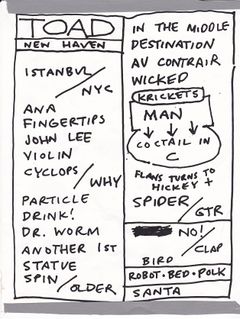 TOAD
NEW HAVEN
ISTANBUL/
NYC
ANA
FINGERTIPS
JOHN LEE
VIOLIN
CYCLOPS/
WHY
PARTICLE
DRINK!
DR. WORM
ANOTHER 1ST
STATUE
SPIN/
OLDER
IN THE MIDDLE
DESTINATION
AU CONTRAIR
WICKED
KRICKETS
MAN
COCTAIL IN
C
FLANS TURNS TO
HICKEY +
SPIDER/
GTR
NO!/
CLAP
BIRD
ROBOT·BED·POLK
SANTA